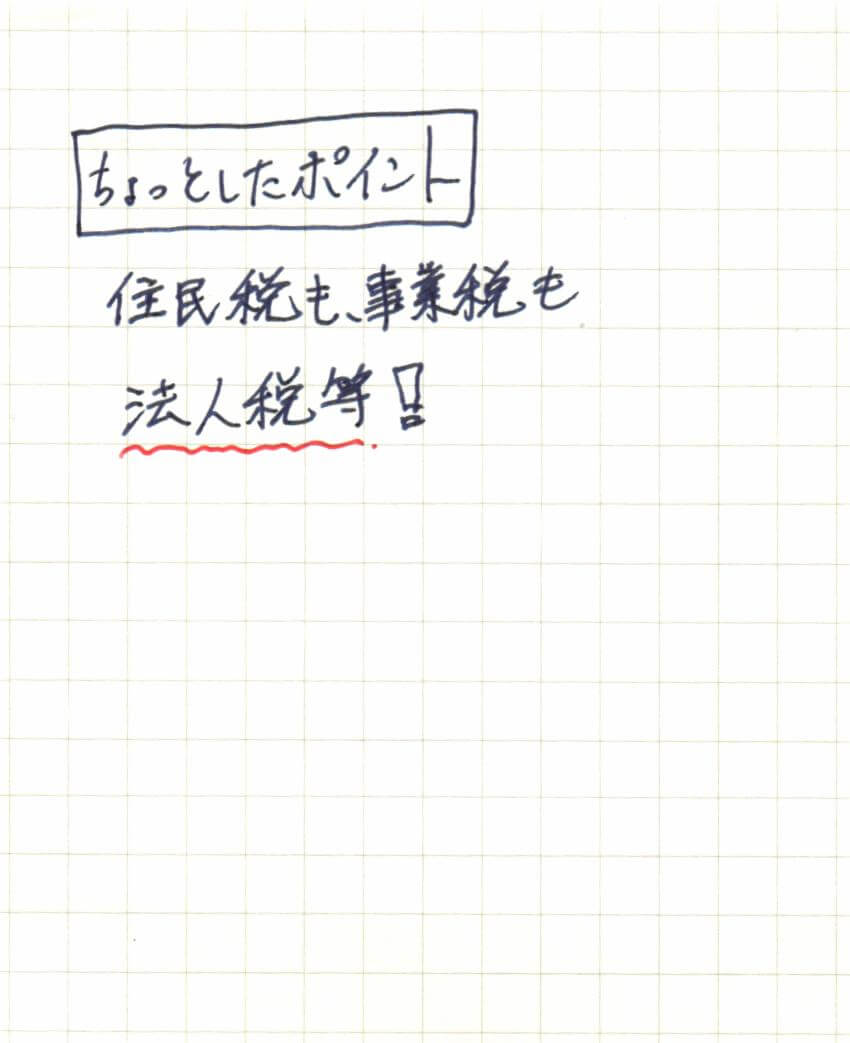 ちょっとしたポイント
住民税も、事業税も
法人税等!